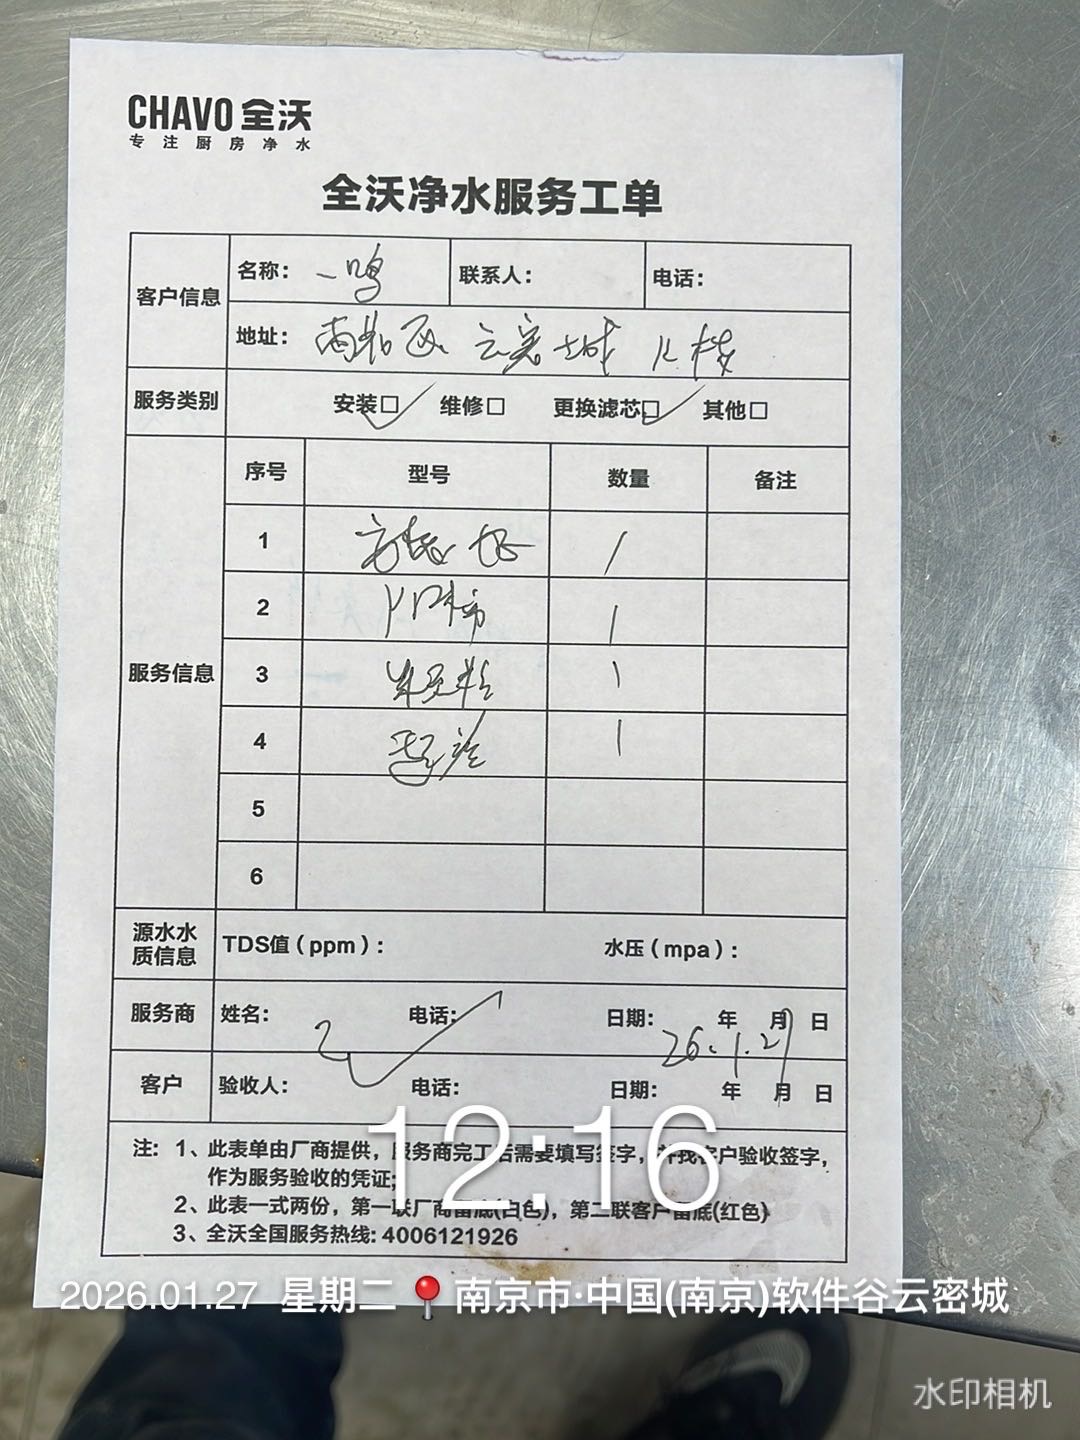 CHAVO 全沃
专注厨房净水
全沃净水服务工单
客户信息 名称： 一鸣 联系人： 电话：
地址： 云密城 栋
服务类别 安装□ 维修□ 更换滤芯□ 其他□
服务信息 序号 型号 数量 备注
1 1
2 1
3 1
4 1
5
6
源水水质信息 TDS值（ppm）： 水压（mpa）：
服务商 姓名： 电话： 日期： 年 月 日
26.1.27
客户 验收人： 电话： 日期： 年 月 日
12:16
注： 1、此表单由厂商提供，服务商完工后需要填写签字，并找客户验收签字，
作为服务验收的凭证；
2、此表一式两份，第一联厂商留底(白色)，第二联客户留底(红色)
3、全沃全国服务热线：4006121926
2026.01.27 星期二 南京市·中国(南京)软件谷云密城
水印相机